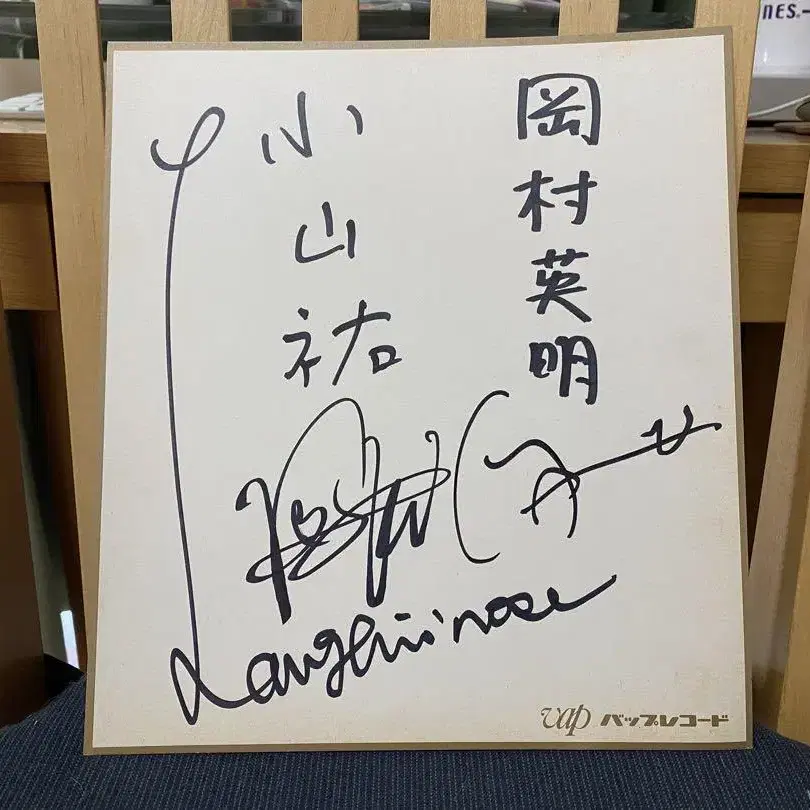 岡村英明
小山祐
Laughin'nose
vap バップレコード
NES.